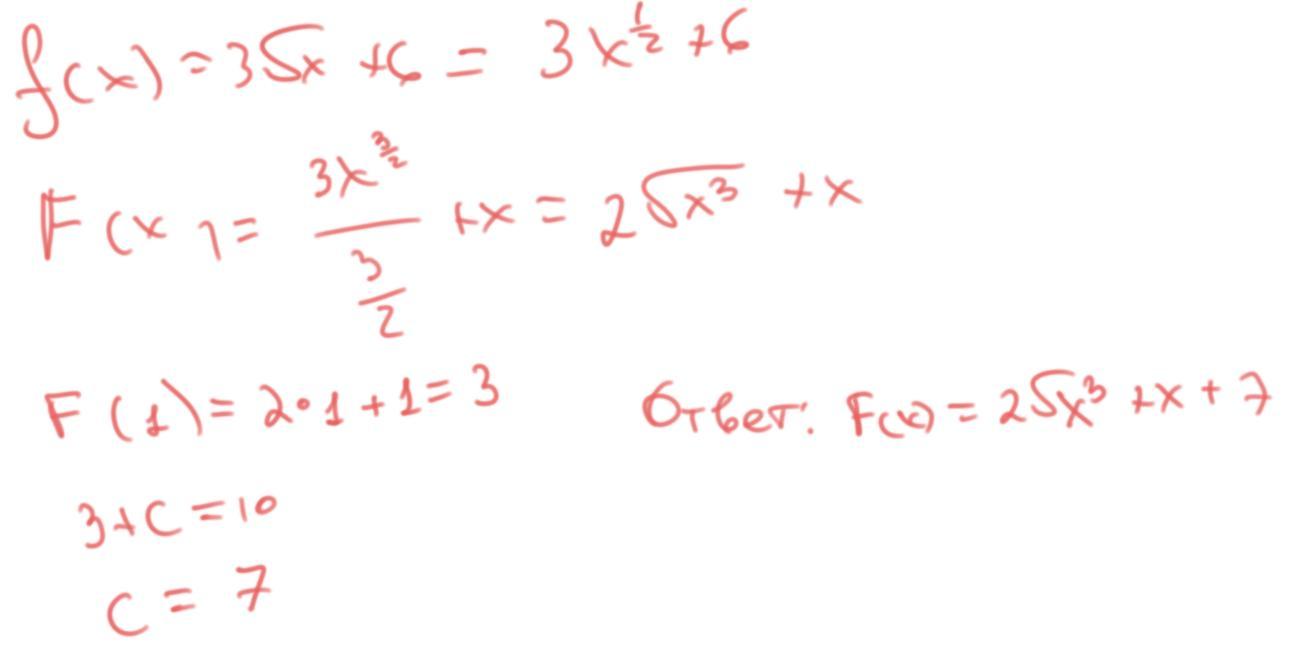 f(x) = 3√x + 6 = 3x^{1/2} + 6
F(x) = \frac{3x^{3/2}}{\frac{3}{2}} + x = 2√x³ + x
F(1) = 2·1 + 1 = 3
Ответ: F(x) = 2√x³ + x + 7
3 + C = 10
C = 7